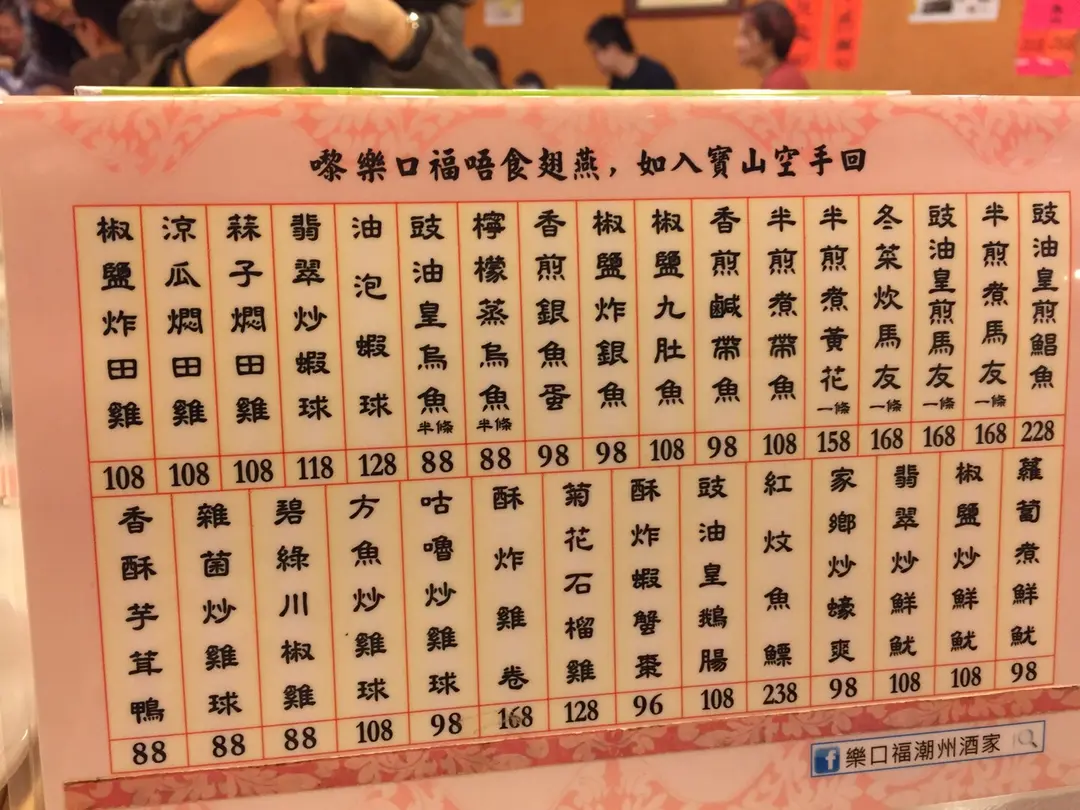 嚟樂口福唔食翅燕，如入寶山空手回
豉油皇煎鯧魚 228
半煎煮馬友 一條 168
豉油皇煎馬友 一條 168
冬菜炊馬友 一條 168
半煎煮黃花 一條 158
半煎煮帶魚 108
香煎鹹帶魚 98
椒鹽九肚魚 108
椒鹽炸銀魚 98
香煎銀魚蛋 98
檸檬蒸烏魚 半條 88
豉油皇烏魚 半條 88
油泡蝦球 128
翡翠炒蝦球 118
蒜子燜田雞 108
涼瓜燜田雞 108
椒鹽炸田雞 108
蘿蔔煮鮮魷 98
椒鹽炒鮮魷 108
翡翠炒鮮魷 108
家鄉炒蠔爽 98
紅炆魚鰾 238
豉油皇鵝腸 108
酥炸蝦蟹棗 96
菊花石榴雞 128
酥炸雞卷 168
咕嚕炒雞球 98
方魚炒雞球 108
碧綠川椒雞 88
雜菌炒雞球 88
香酥芋茸鴨 88
f 樂口福潮州酒家